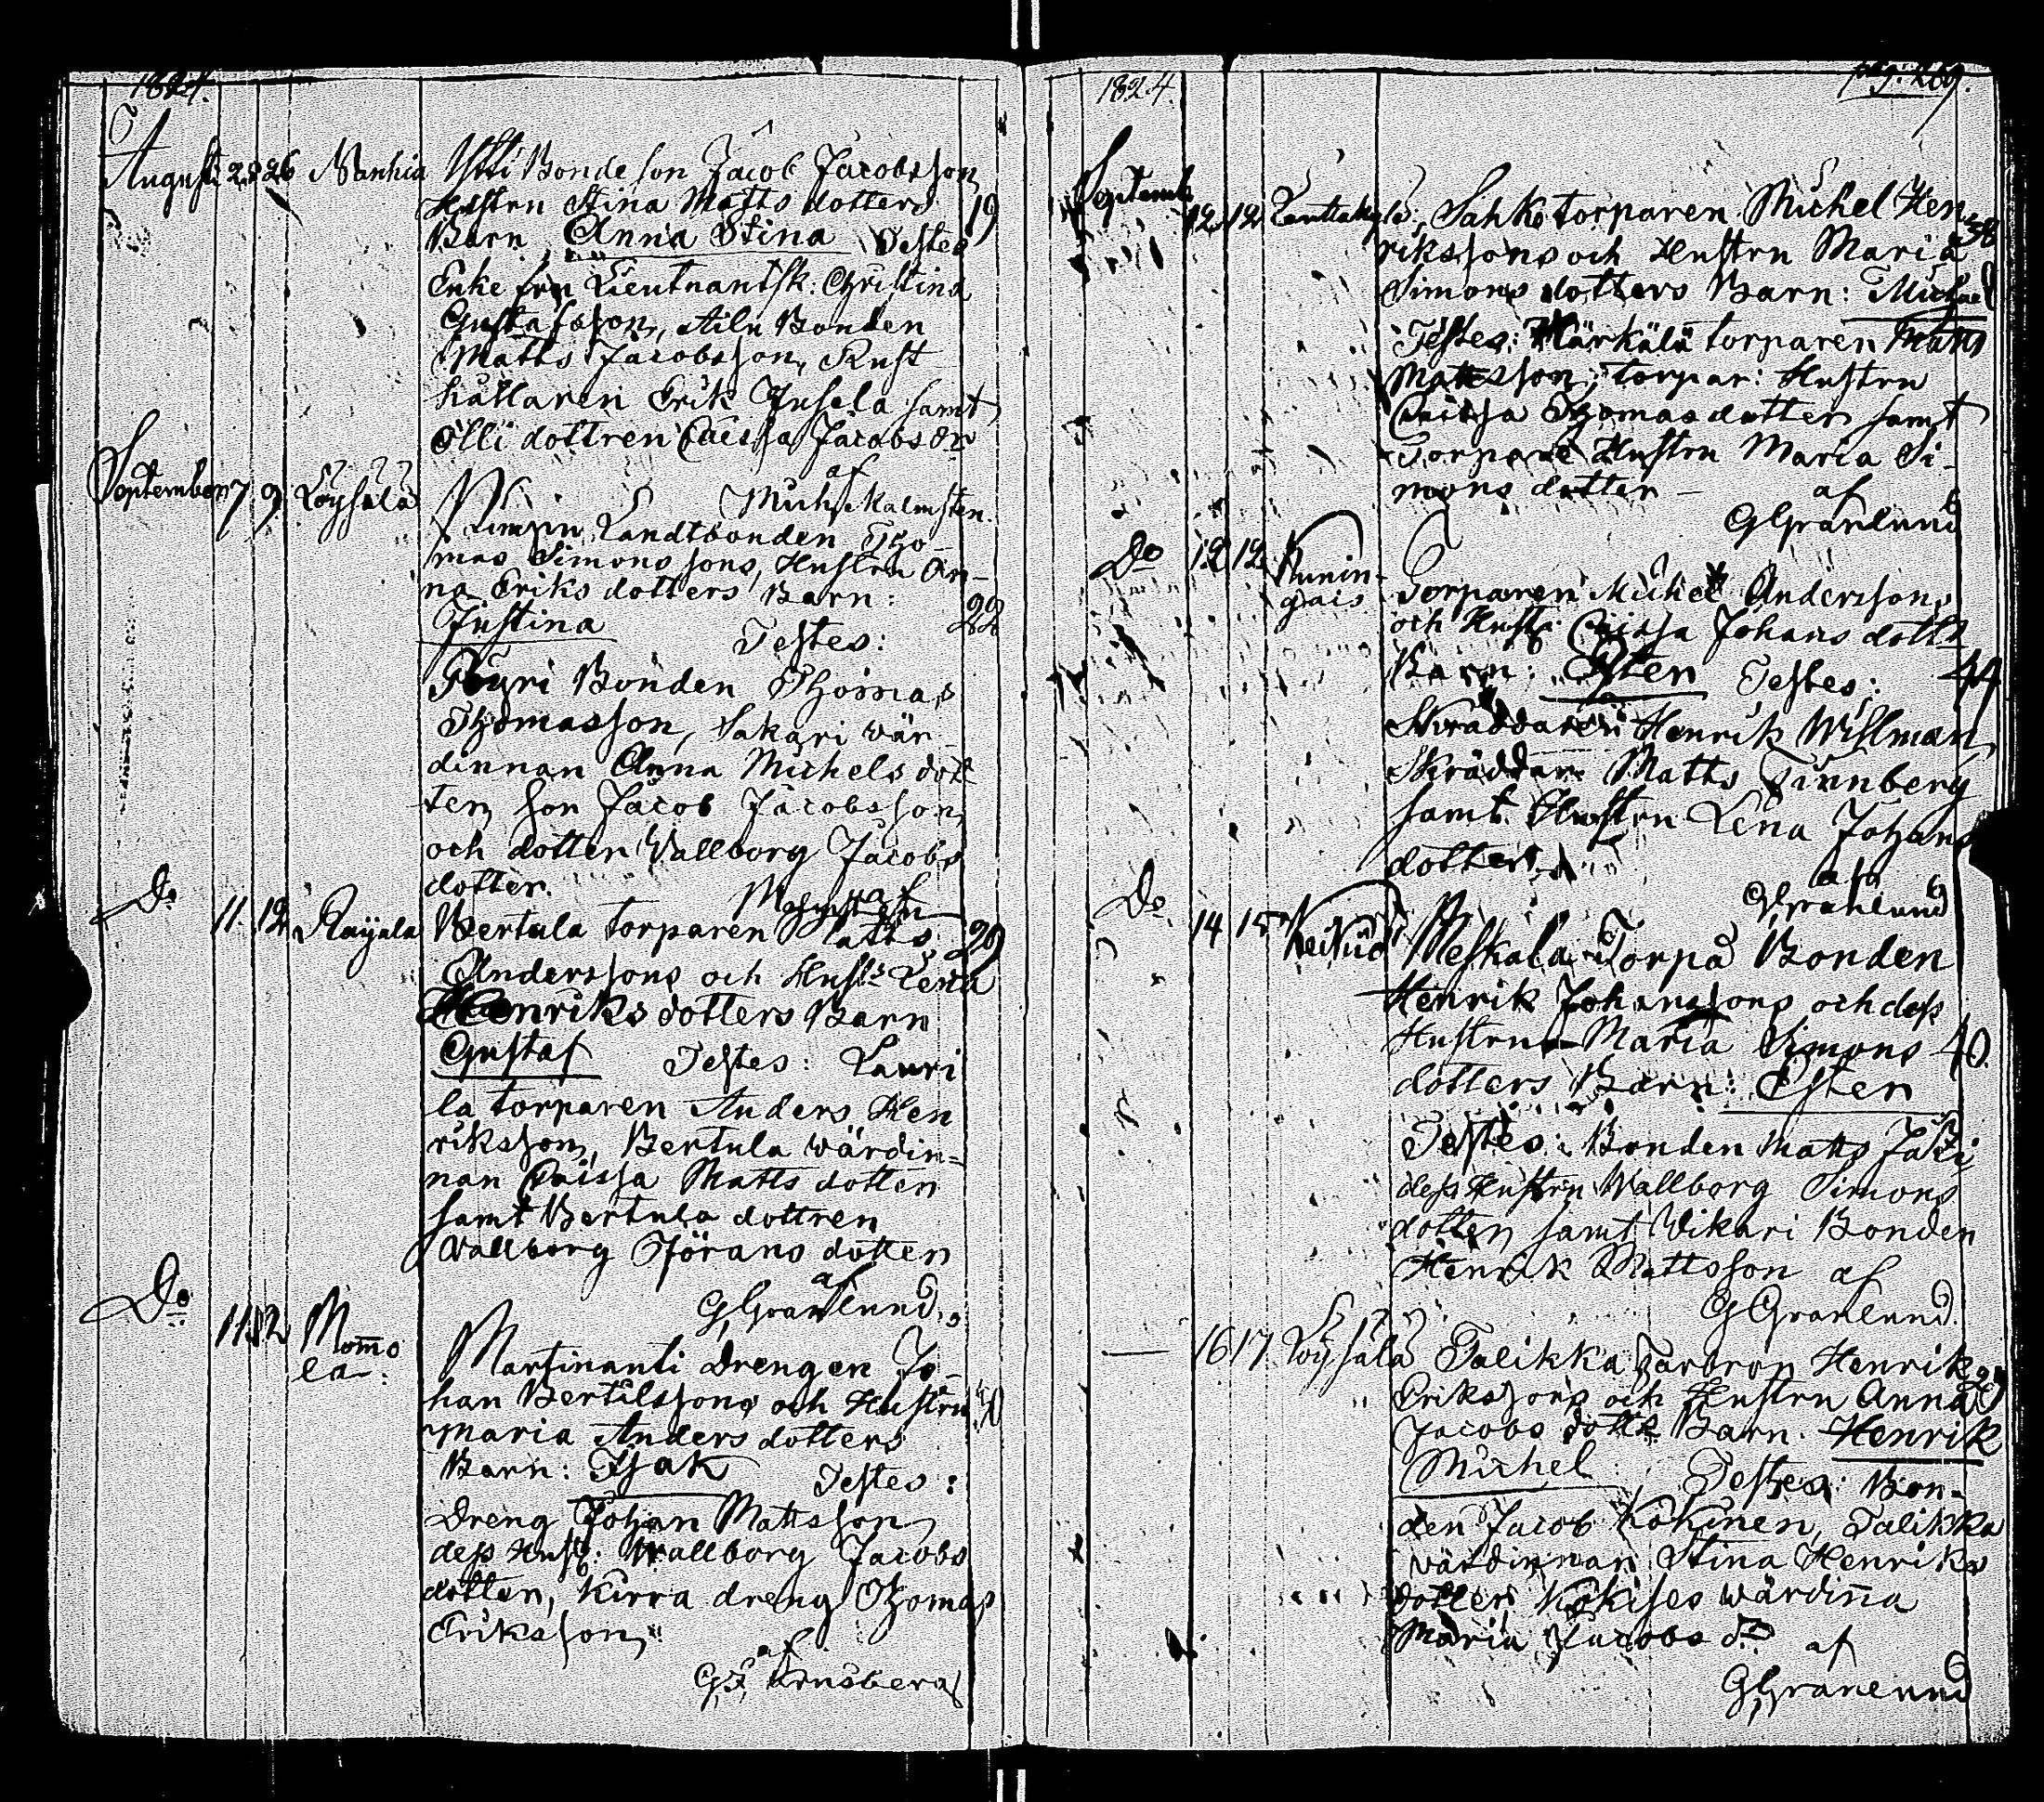 1824.
Augusti 23 26 Manhia Ylli Bonde son Jacob Jacobsson
Hustru Stina Matts dotters 19
Barn Anna Stina Testes
Enke fru Lieutnantsk: Christina
Gustafsson, Bonden
Matts Jacobsson, Rust
hållaren Erik Jusela samt
Olli dottren Caissa Jacobs dr
af
Mich. Malmsten.
September 7 9 Löysälä Landtbonden Tho-
mas Simonssons, Hustru An-
na Eriks dotters Barn: 22
Justina Testes:
Bonden Thomas
Thomasson, Sakari wär-
dinnan Anna Michels dot-
ter, son Jacob Jacobsson
och dotter Wallborg Jacobs
dotter.
Do 11. 12 Raijala Bertula torparen Matts 29
Anderssons och Hust: Lena
Henriks dotters Barn
Gustaf Testes: Lauri
la torparen Anders Hen
riksson, Bertula wärdin=
nan Caissa Matts dotter
samt Bertula dottren
Wallborg Jörans dotter
af
G Granlund.
Do 11 12 Mom̄o
la Martinanti Drengen Jo-
han Bertilssons och Hustru 40
Maria Anders dotters
Barn: Isak Testes:
Dreng Johan Mattsson
dess Hust: Wallborg Jacobs
dotter, Kirra dreng Thomas
Eriksson,
af
1824. pag: 269.
Septemb 12 12 Sahko torparen Michel Hen 38
rikssons och Hustru Maria
Simons dotters Barn: Michael
Testes: Härkälä torparen Matts
Mattsson, torpar: Hustru
Caissa Thomas dotter samt
Torpare Hustru Maria Si-
mons dotter – af
G Granlund
Do 12 12 Kunin-
gais Torparen Michel Anderssons
och Hust: Caissa Johans dott:
Barn: Esten Testes: 44
Skräddaren Henrik Wihlman,
Skräddare Matts Linnberg
samt Hustru Lena Johans
dotter.
af
G Granlund
Do 14 15 Keikiö Meskala Torpa Bonden
Henrik Johanssons och dess
Hustru Maria Simons 40.
dotters Barn: Esten
Testes: Bonden Matts Jaki
dess Hustru Wallborg Simons
dotter samt Wikari Bonden
Henrik Mattsson af
G Granlund.
— 16 17 Löysälä Talikka Farbror Henrik
Erikssons och Hustru Anna
Jacobs dottr Barn. Henrik
Michel Testes: Bon-
den Jacob Kökinen, Talikka
värdinnan Stina Henriks
dotter Kökises wärdin̄a
Maria Jacobs d. af
G Granlund